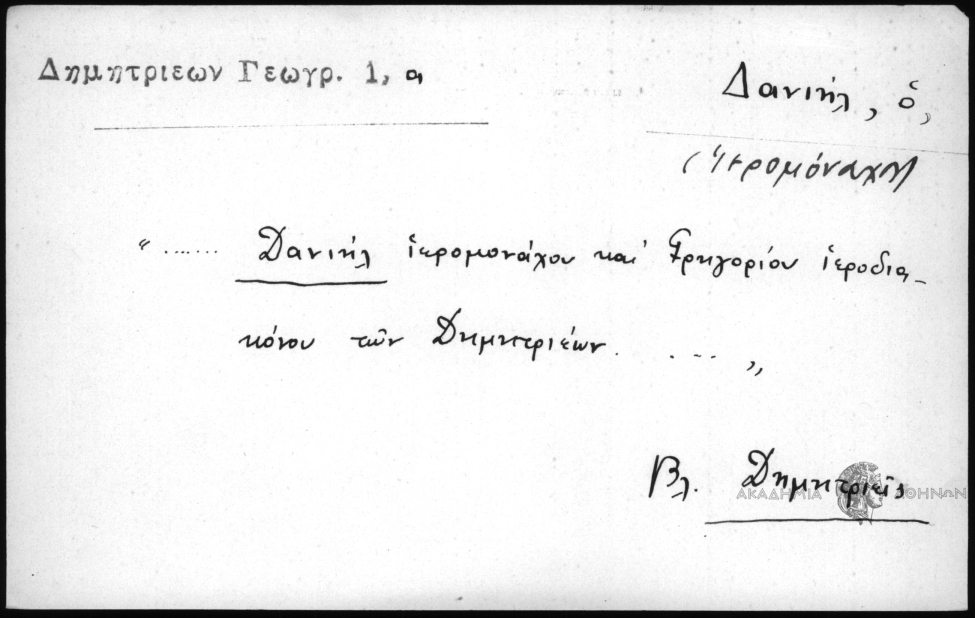 Δημητριεων Γεωγρ. 1, α
Δανιήλ, ὁ,
(ἱερομόναχος)
“ ...... Δανιήλ ἱερομονάχου καί Γρηγορίου ἱεροδια-
κόνου τῶν Δημητριέων. .... „
Βλ. Δημητριεῖς
ΑΚΑΔΗΜΙΑ ΑΘΗΝΩΝ